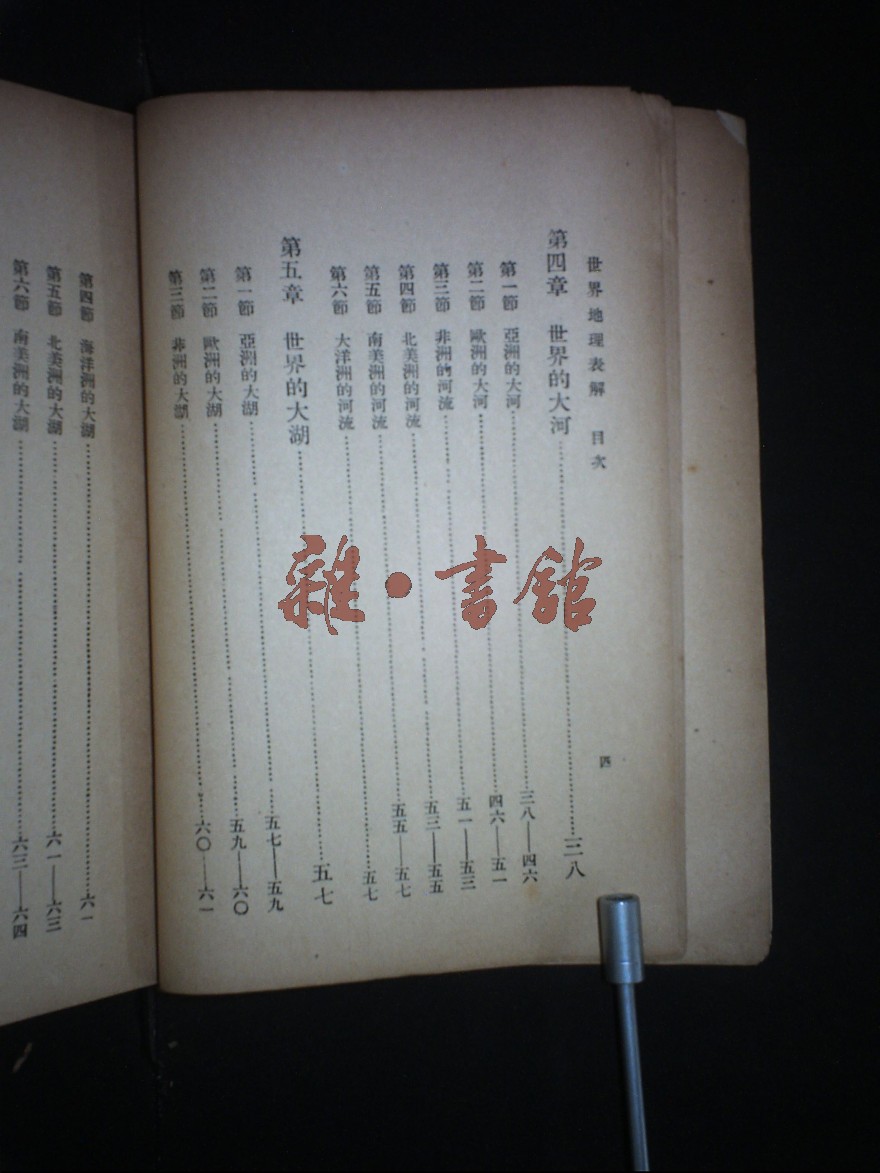 世界地理表解 目次
四
第四章 世界的大河……三八
第一節 亞洲的大河……三八——四六
第二節 歐洲的大河……四六——五一
第三節 非洲的河流……五一——五三
第四節 北美洲的河流……五三——五五
第五節 南美洲的河流……五五——五七
第六節 大洋洲的河流……五七
第五章 世界的大湖……五七
第一節 亞洲的大湖……五七——五九
第二節 歐洲的大湖……五九——六〇
第三節 非洲的大湖……六〇——六一
第四節 海洋洲的大湖……六一
第五節 北美洲的大湖……六一——六三
第六節 南美洲的大湖……六三——六四
雜·書館